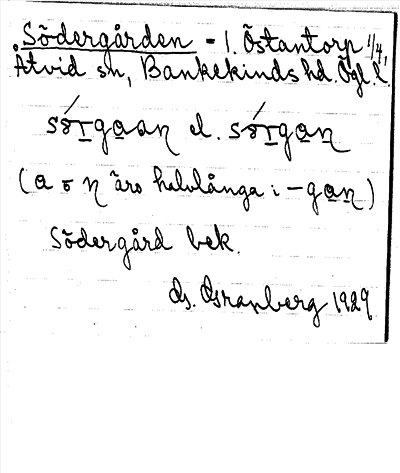 Södergården - 1. Östantorp 1/4,
Åtvid sn, Bankekinds hd. Ögl. l.
sörgaan el. sörgan
(a o n äro halvlånga i -gan)
Södergård bek.
1929